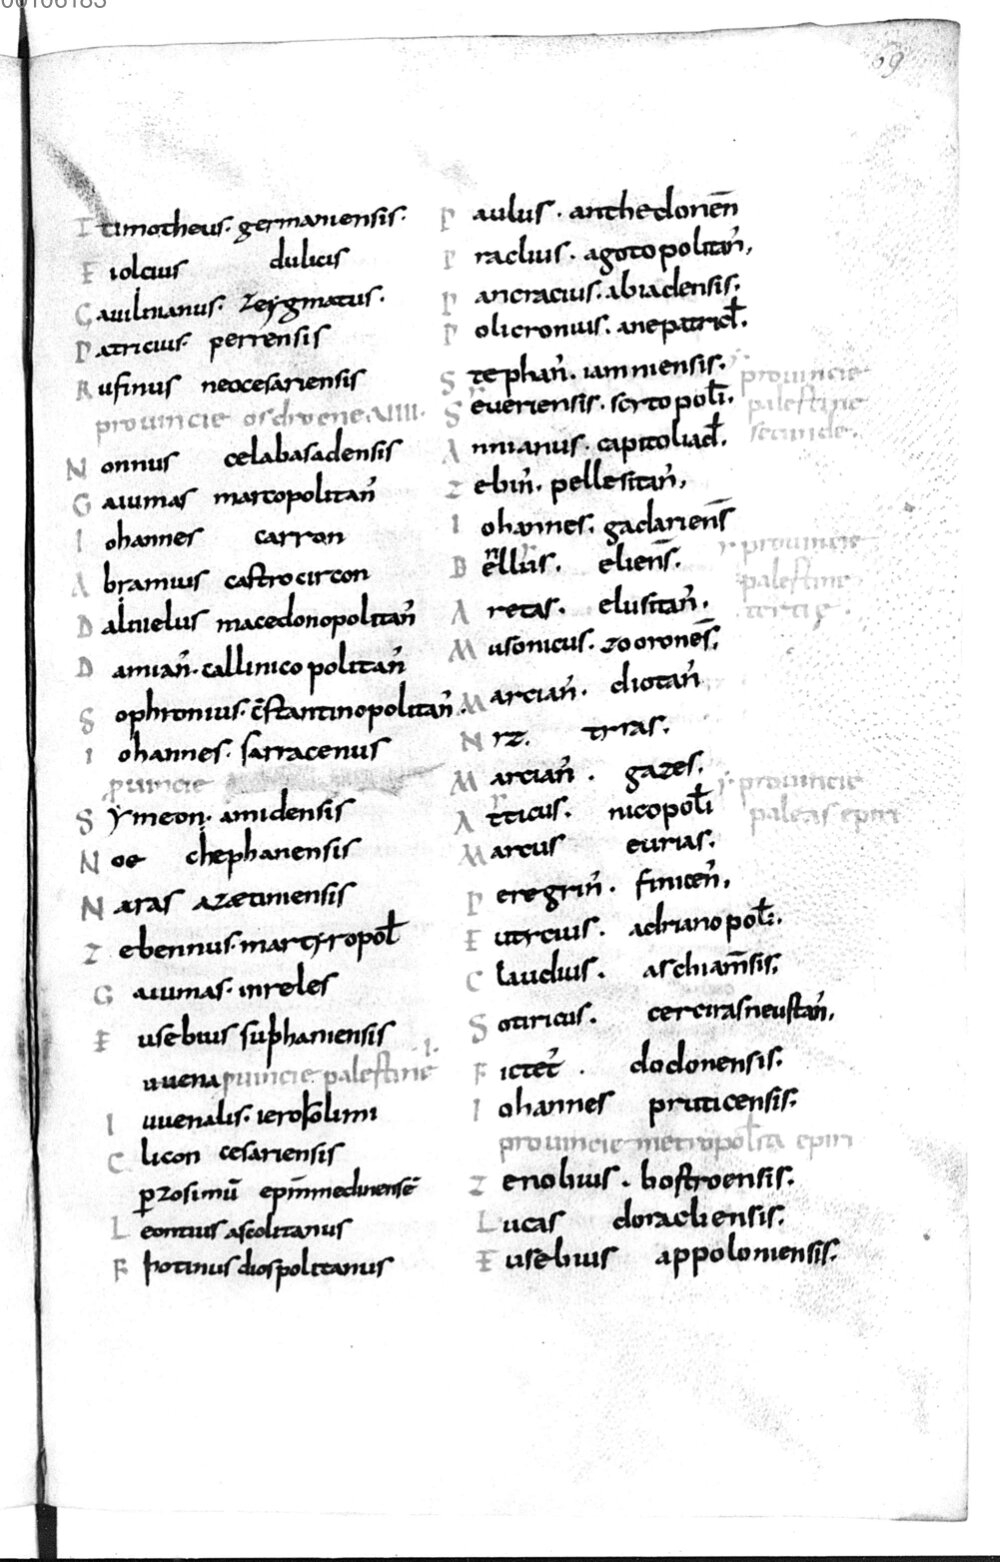 00106183
69
I timotheus. germaniensis.
E iolcius dulicis
C auilnianus. zeygmatus.
P atricius. perrensis
R ufinus neocesariensis
prouincie osdroene. XIIII.
N onnus celabasadensis
G aiumas marcopolitan̄
I ohannes carron
A bramius castrocircon
D aliuelus macedonopolitan̄
D amian̄. callinico politan̄
S ophronius. c̄stantinopolitan̄.
I ohannes. sarracenus
puincie
S ymeon. amidensis
N oe chephanensis
N aras azetiniensis
Z ebennus. martyropoł
G aiumas. inreles
E usebius suphaniensis
uuena puincie palestine .I.
I uuenalis. ierosolimi
C licon cesariensis
p zosimū ep̄m medinensē
L eontius ascolitanus
F hotinus diospolitanus
P aulus. anthedonen̄
P raclius. agotopolitan̄,
P ancracius. abiadensis.
P olicronius. anepatricł.
S tephan̄. iamniensis. prouincie
S eueriensis. scytopolī. palestine
A nnianus. capitoliad̄. secunde.
Z ebin̄. pellesitan̄,
I ohannes. gadariens̄
prouincie
B ellius. eliens̄. palestine
A retas. elusitan̄. tertię.
M usonicus. zoorones̄,
M arcian̄. diotan̄
N rz. trras.
M arcian̄. gazes. prouincie
A tticus. nicopolī paleas epiri
M arcus eurias.
P eregrin̄. finicen̄,
E utrcius. adrianopoł.
C laudius. aschiam̄sis,
S otiricus. cercirasneustan̄,
F ictet̄. dodonensis.
I ohannes pruticensis.
prouincie metropolita epiri
Z enobius. bostroensis.
L ucas doracliensis.
E usebius appoloniensis.